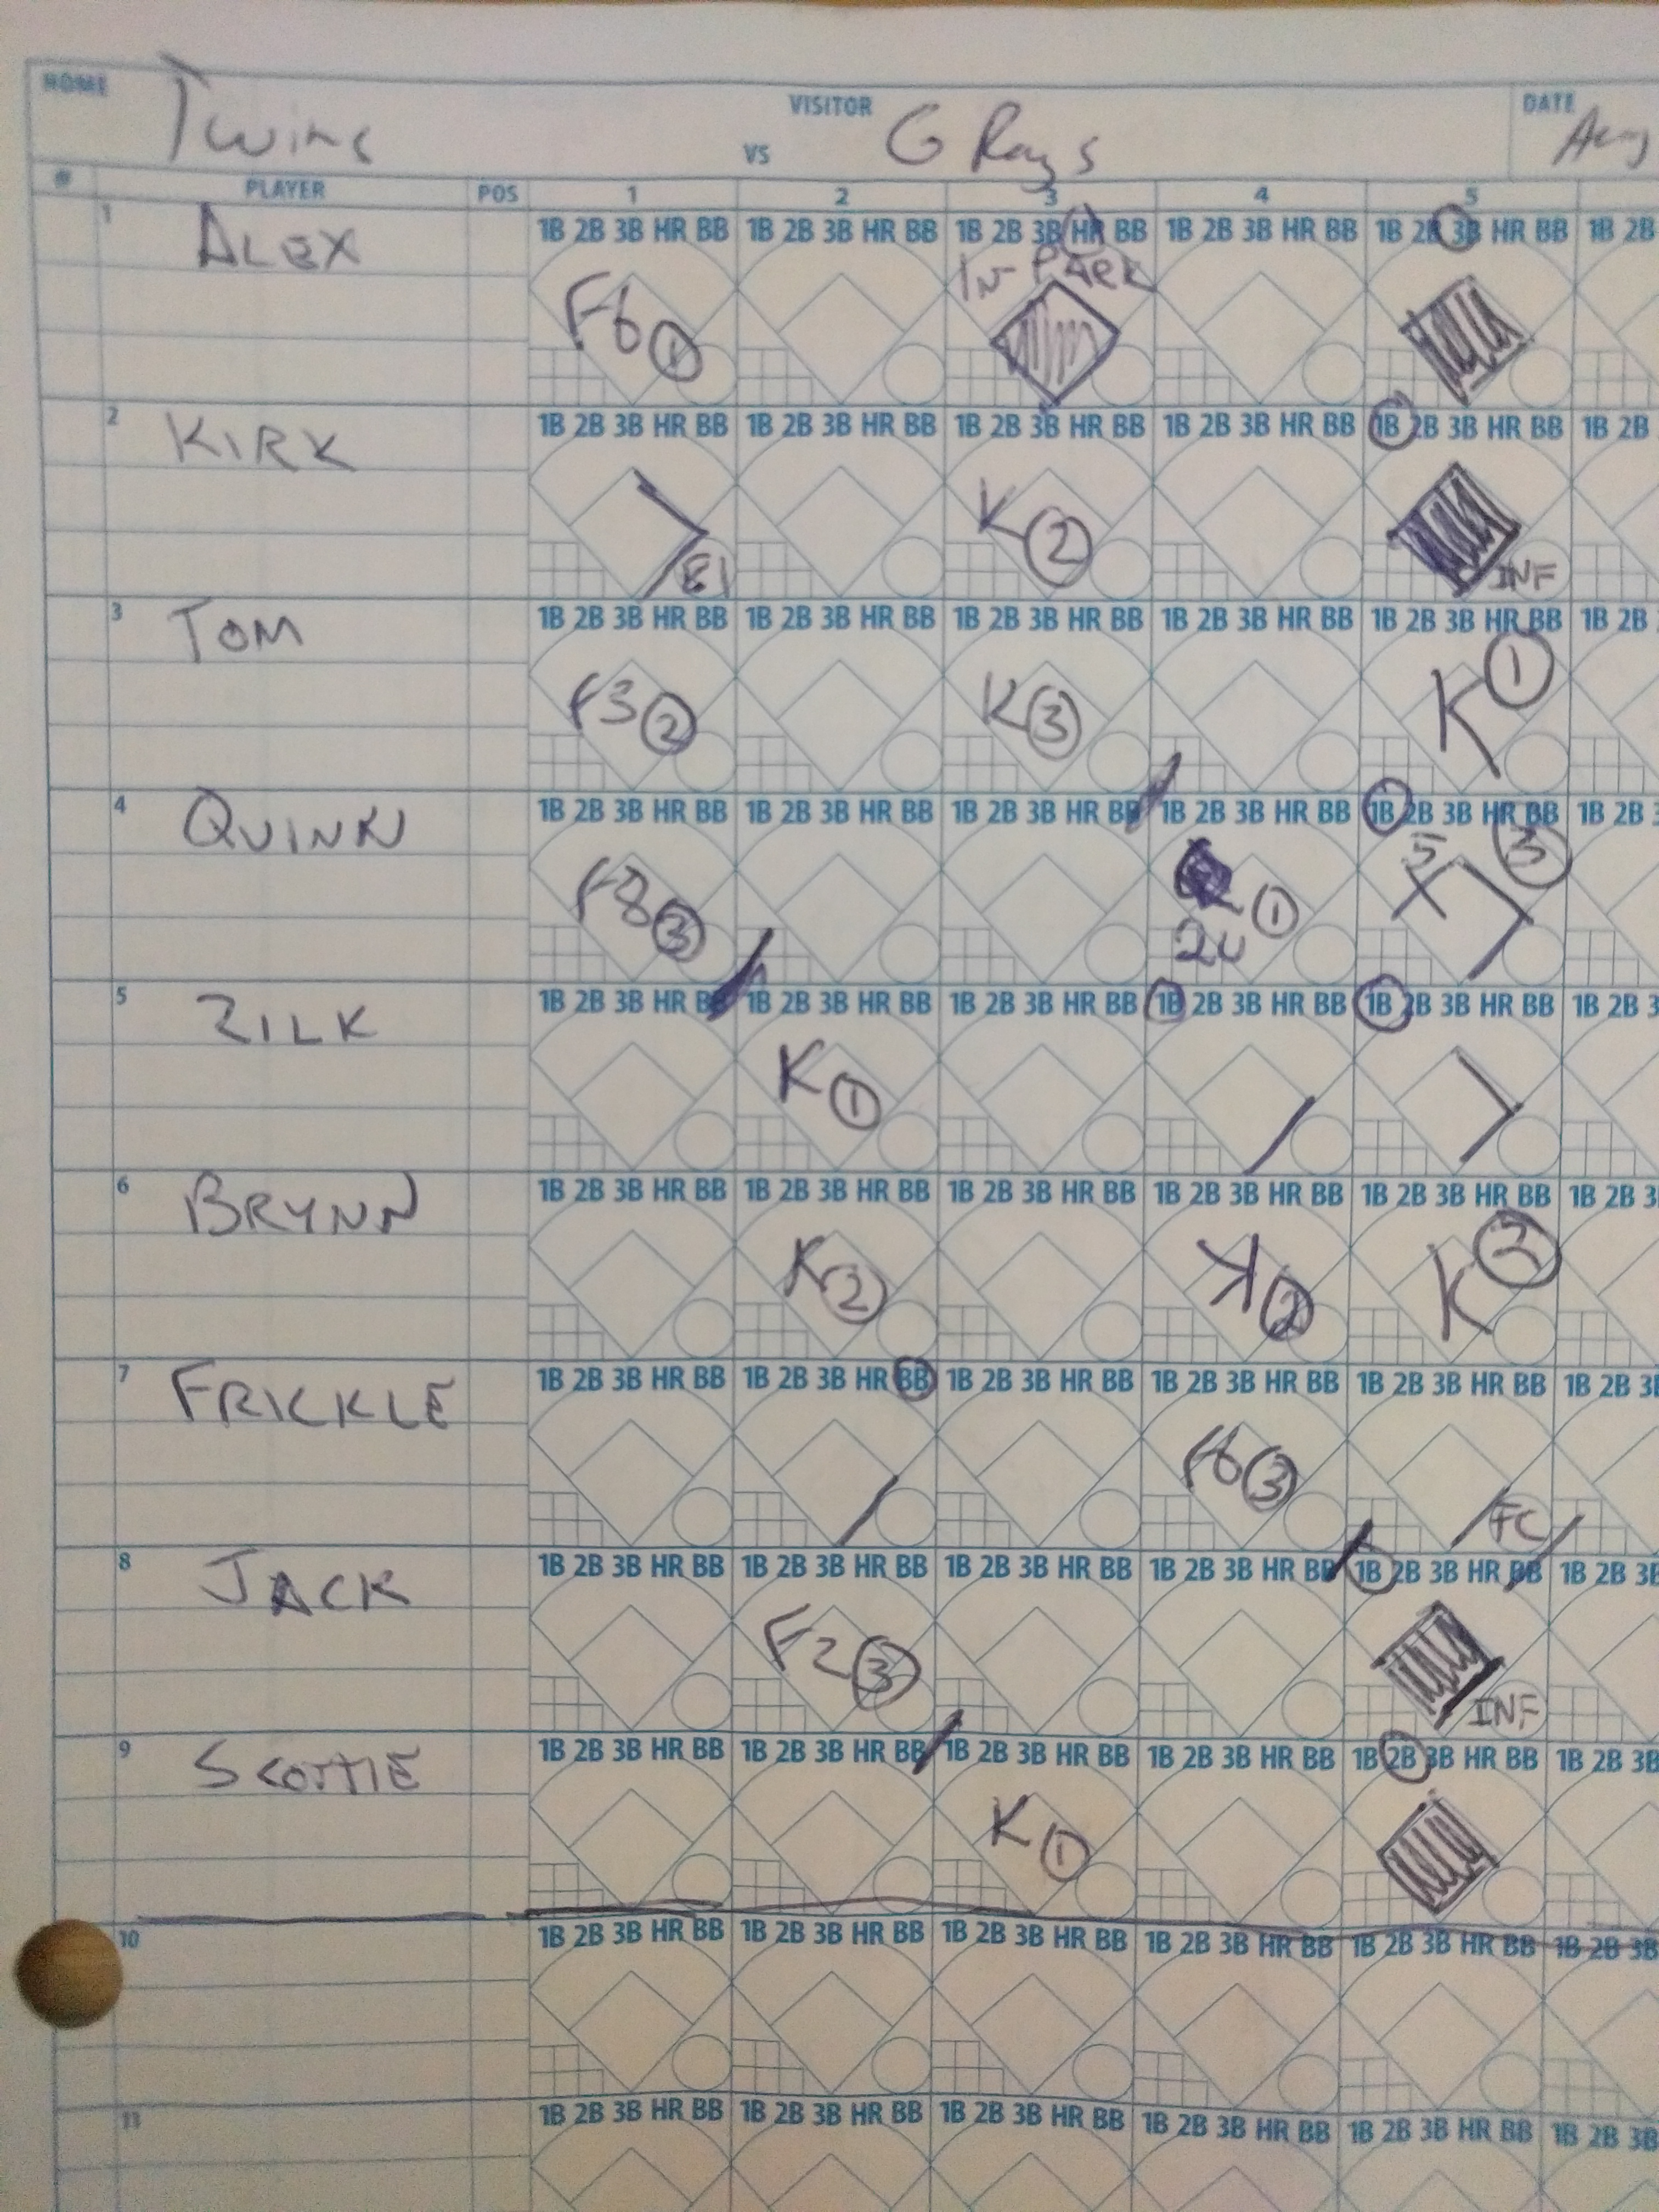 HOME Twins VISITOR VS G Rays DATE Aug
# PLAYER POS 1 2 3 4 5
1 ALEX 1B 2B 3B HR BB 1B 2B 3B HR BB 1B 2B 3B HR BB 1B 2B 3B HR BB 1B 2B 3B HR BB 1B 2B
IN PARK
F6 1
2 KIRK 1B 2B 3B HR BB 1B 2B 3B HR BB 1B 2B 3B HR BB 1B 2B 3B HR BB 1B 2B 3B HR BB 1B 2B
K 2
E1 INF
3 TOM 1B 2B 3B HR BB 1B 2B 3B HR BB 1B 2B 3B HR BB 1B 2B 3B HR BB 1B 2B 3B HR BB 1B 2B
F3 2 K 3 K 1
4 QUINN 1B 2B 3B HR BB 1B 2B 3B HR BB 1B 2B 3B HR BB 1B 2B 3B HR BB 1B 2B 3B HR BB 1B 2B 3
F8 3 1 5 3
2U
5 ZILK 1B 2B 3B HR BB 1B 2B 3B HR BB 1B 2B 3B HR BB 1B 2B 3B HR BB 1B 2B 3B HR BB 1B 2B 3
K 1
6 BRYNN 1B 2B 3B HR BB 1B 2B 3B HR BB 1B 2B 3B HR BB 1B 2B 3B HR BB 1B 2B 3B HR BB 1B 2B 3
K 2 K 2 K 2
7 FRICKLE 1B 2B 3B HR BB 1B 2B 3B HR BB 1B 2B 3B HR BB 1B 2B 3B HR BB 1B 2B 3B HR BB 1B 2B 3B
F6 3 FC
8 JACK 1B 2B 3B HR BB 1B 2B 3B HR BB 1B 2B 3B HR BB 1B 2B 3B HR BB 1B 2B 3B HR BB 1B 2B 3B
F2 3 INF
9 SCOTTIE 1B 2B 3B HR BB 1B 2B 3B HR BB 1B 2B 3B HR BB 1B 2B 3B HR BB 1B 2B 3B HR BB 1B 2B 3B
K 1
10 1B 2B 3B HR BB 1B 2B 3B HR BB 1B 2B 3B HR BB 1B 2B 3B HR BB 1B 2B 3B HR BB 1B 2B 3B
11 1B 2B 3B HR BB 1B 2B 3B HR BB 1B 2B 3B HR BB 1B 2B 3B HR BB 1B 2B 3B HR BB 1B 2B 3B